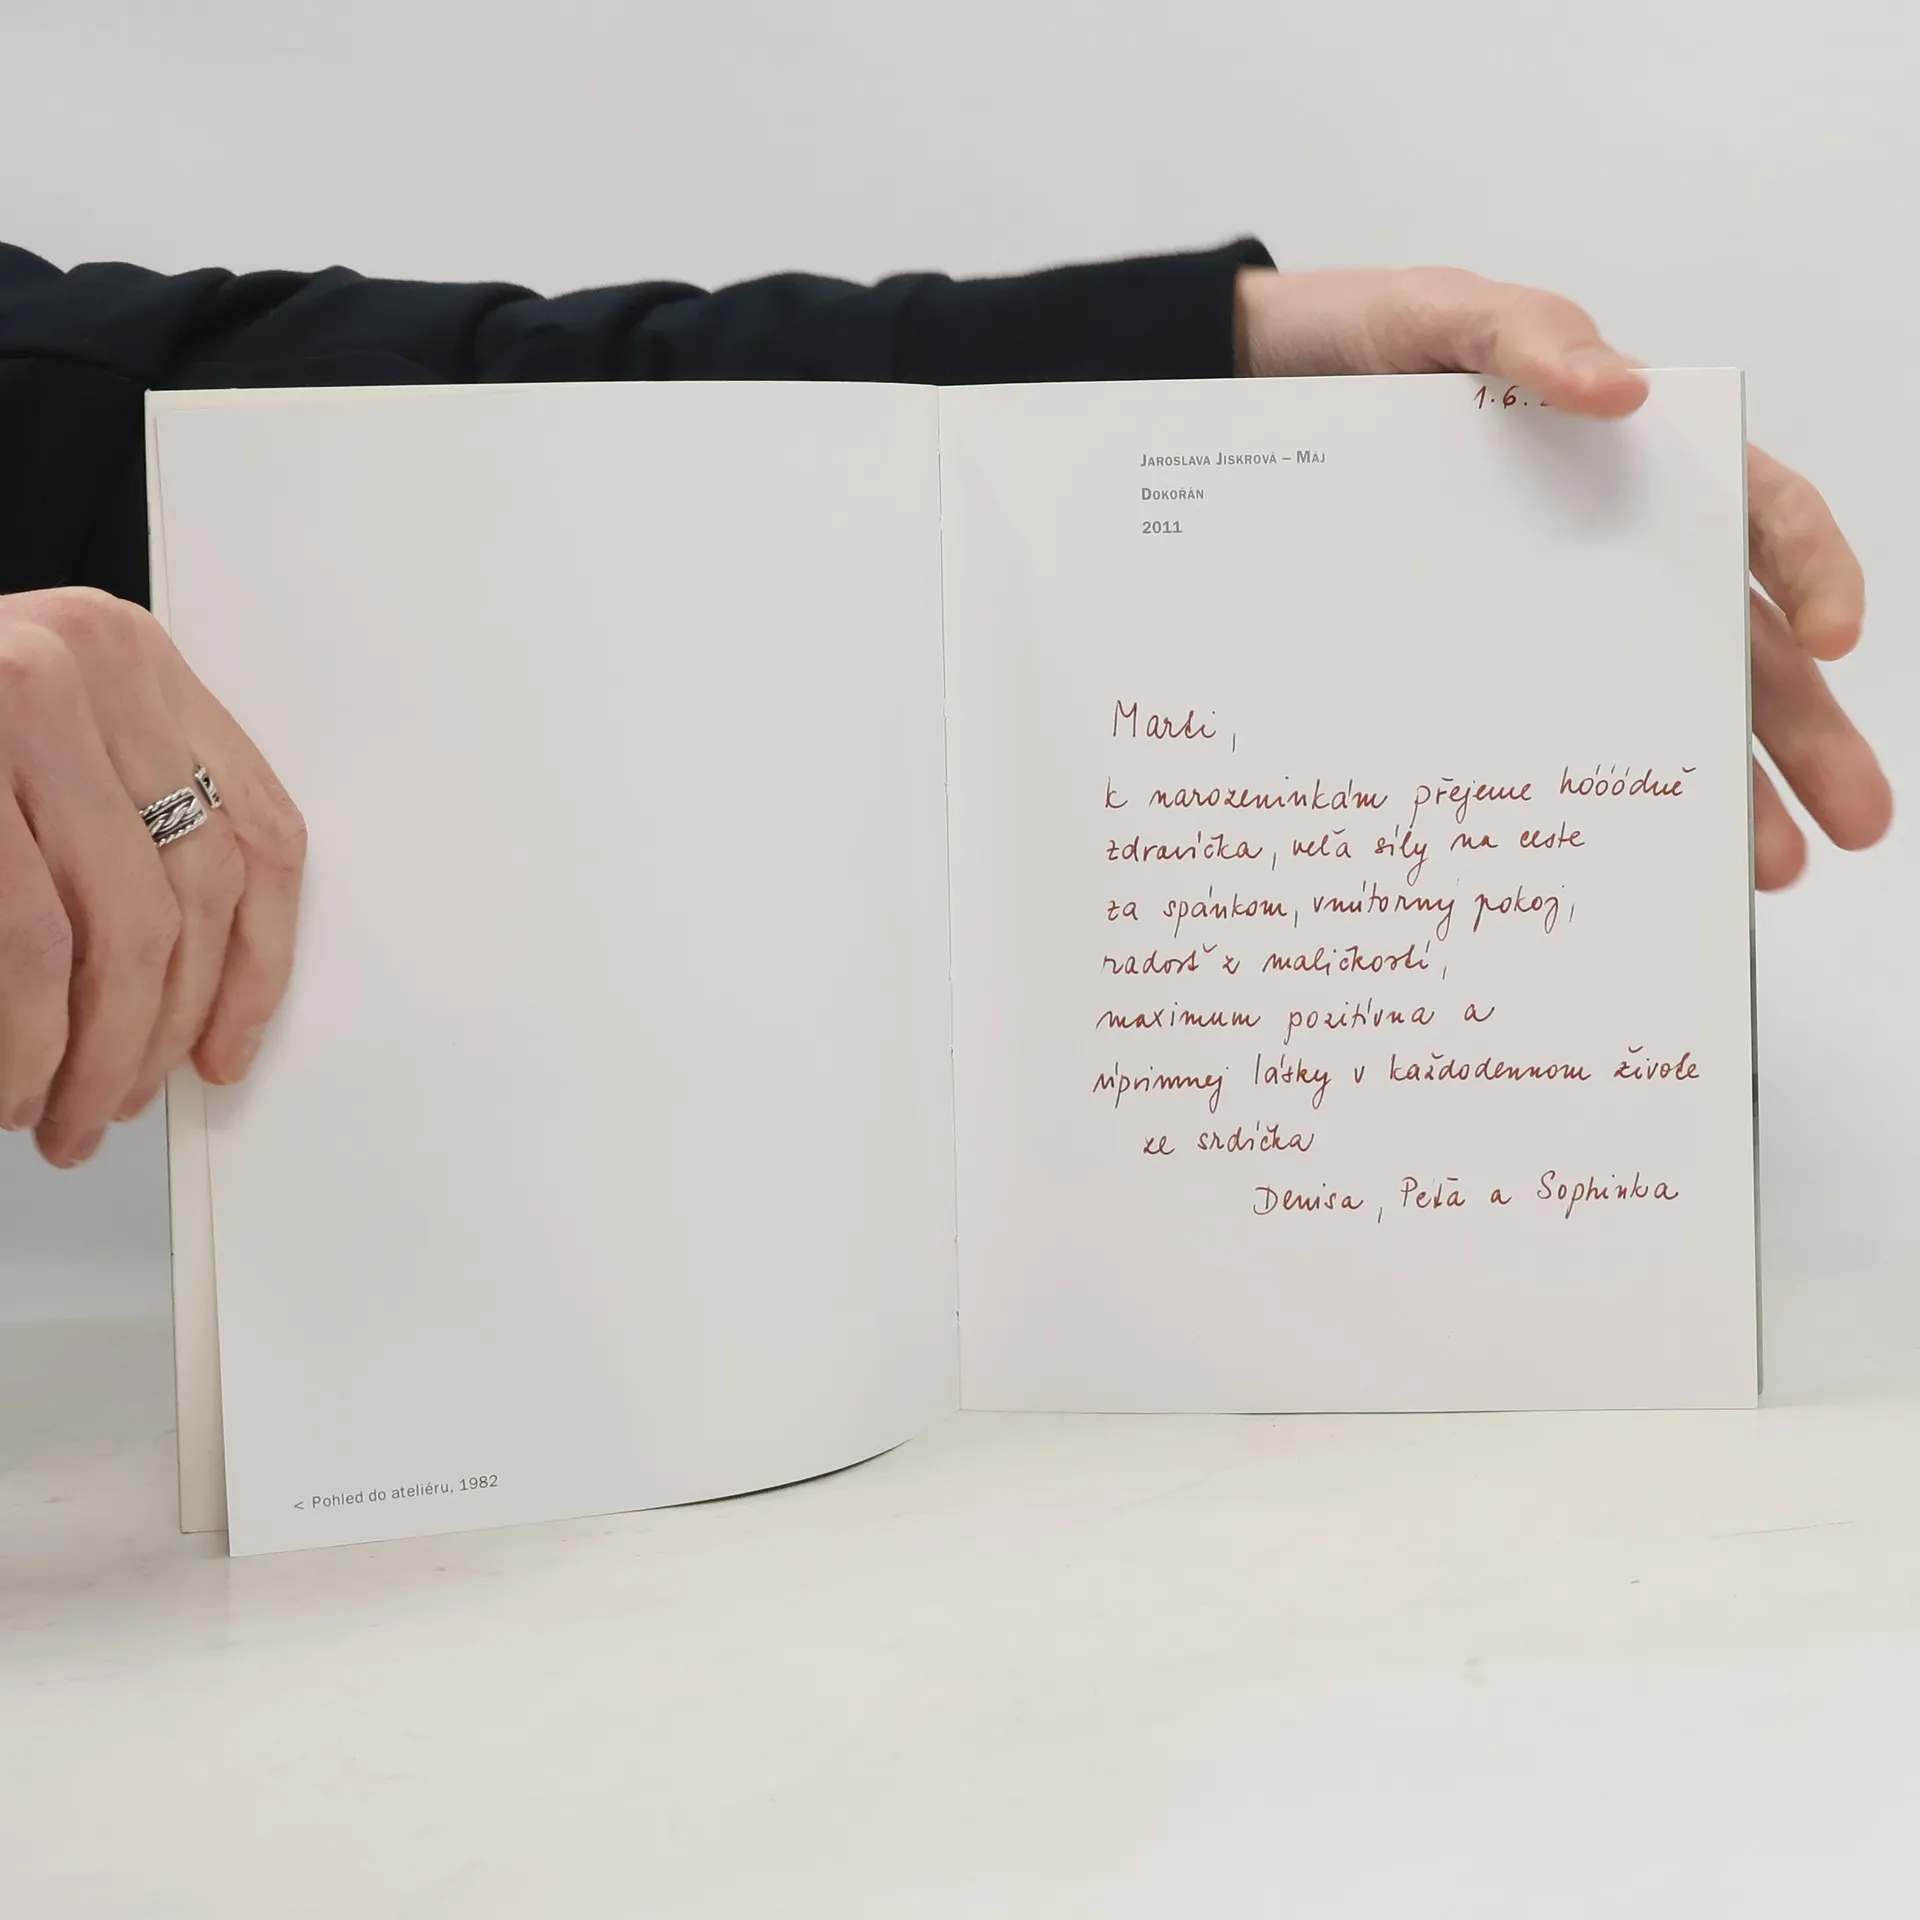 1.6.
JAROSLAVA JISKROVÁ – MÁJ
DOKOŘÁN
2011
Marti,
k narozeninkám přejeme hóóódně
zdravíčka, veľa síly na ceste
za spánkom, vnútorný pokoj,
radosť z maličkostí,
maximum pozitívna a
úprimnej lásky v každodennom živote
ze srdíčka
Denisa, Peťa a Sophinka
< Pohled do ateliéru, 1982